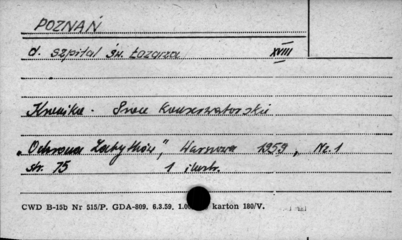 POZNAŃ
d. szpital św. Łazarza XVIII
Kronika. Prace konserwatorskie
"Ochrona Zabytków", Warszawa 1959, Nr. 1
str. 75 1 ilustr.
CWD B-15b Nr 515/P. GDA-809. 6.3.59. 1.00 karton 180/V.